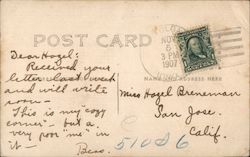 POST CARD
NOV
6
3 PM
1907
Dear Hazel:
Received your
letter last week
and will write
soon —
This is my "cozy
corner" but a
very poor "me" in
it —
Bess.
NAME AND ADDRESS HERE
Miss Hazel Breneman
San Jose.
Calif.
51086